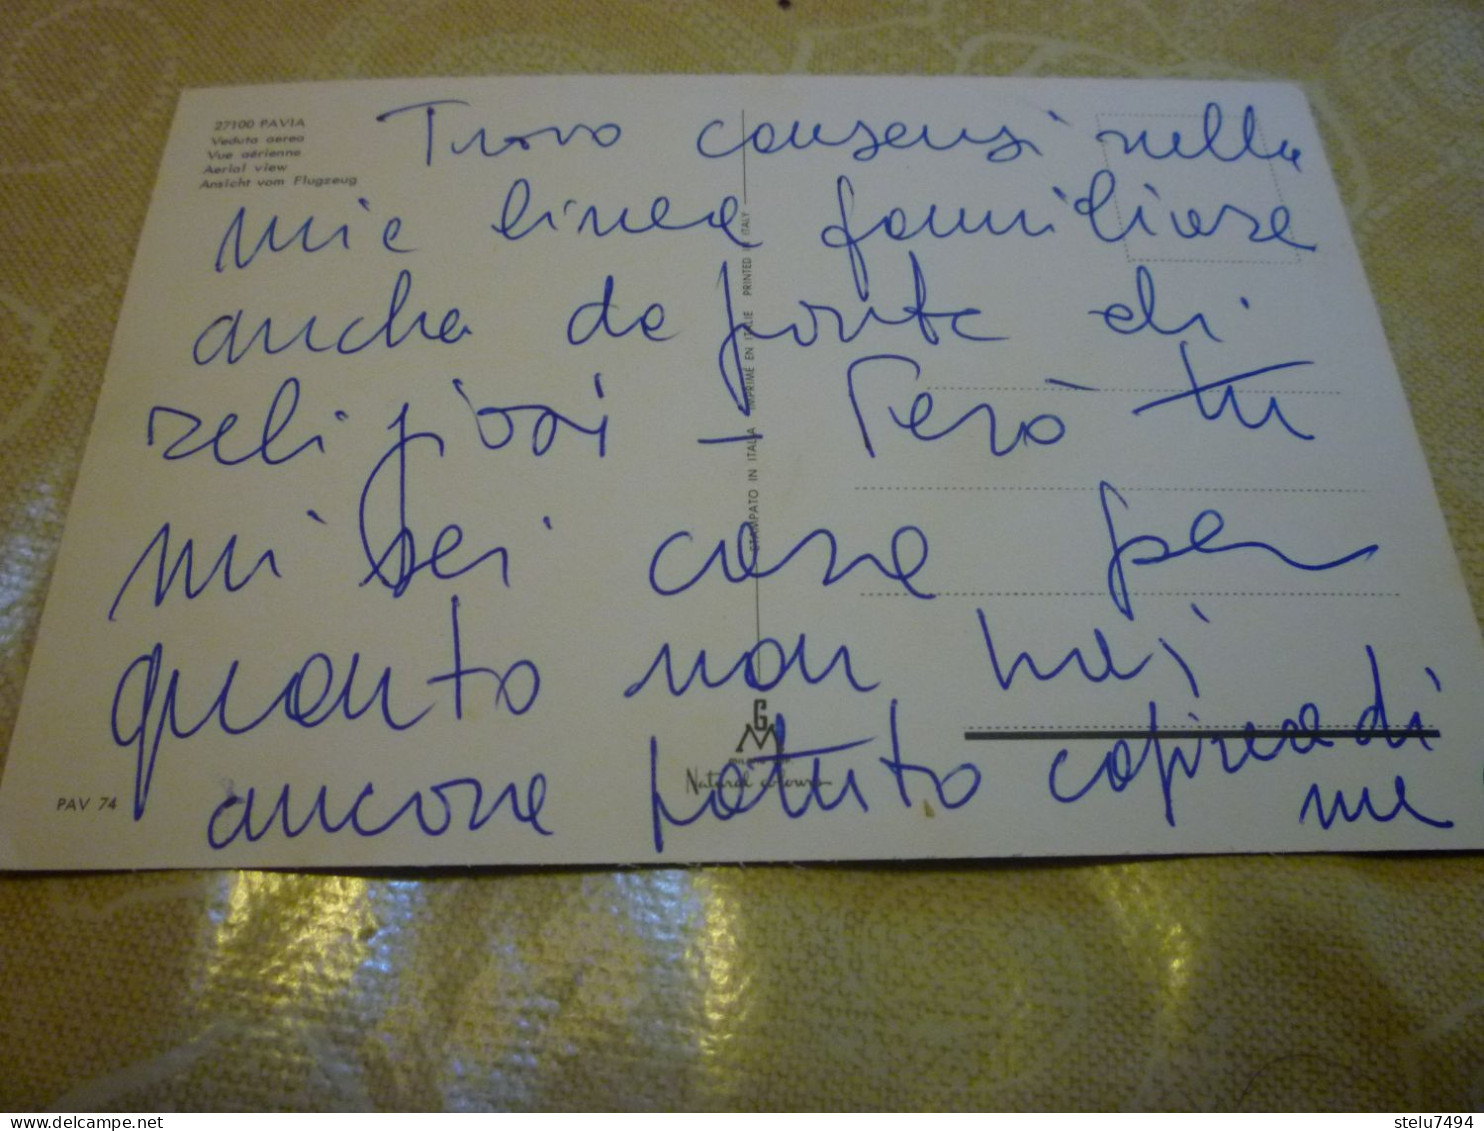 27100 PAVIA
Veduta aerea
Vue aérienne
Aerial view
Ansicht vom Flugzeug
Trovo consensi nella
mia linea familiare
anche da parte di
religiosi – Però tu
mi sei cara per
quanto non hai
ancora potuto capire di
me
STAMPATO IN ITALIA IMPRIMÉ EN ITALIE PRINTED IN ITALY
G
M
Natural colours
PAV 74
delcampe.net
stelu7494